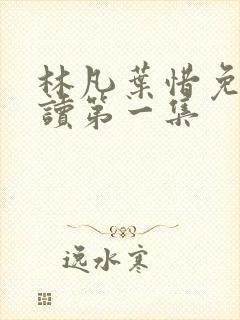 林凡葉惜免
讀第一集
逸水寒